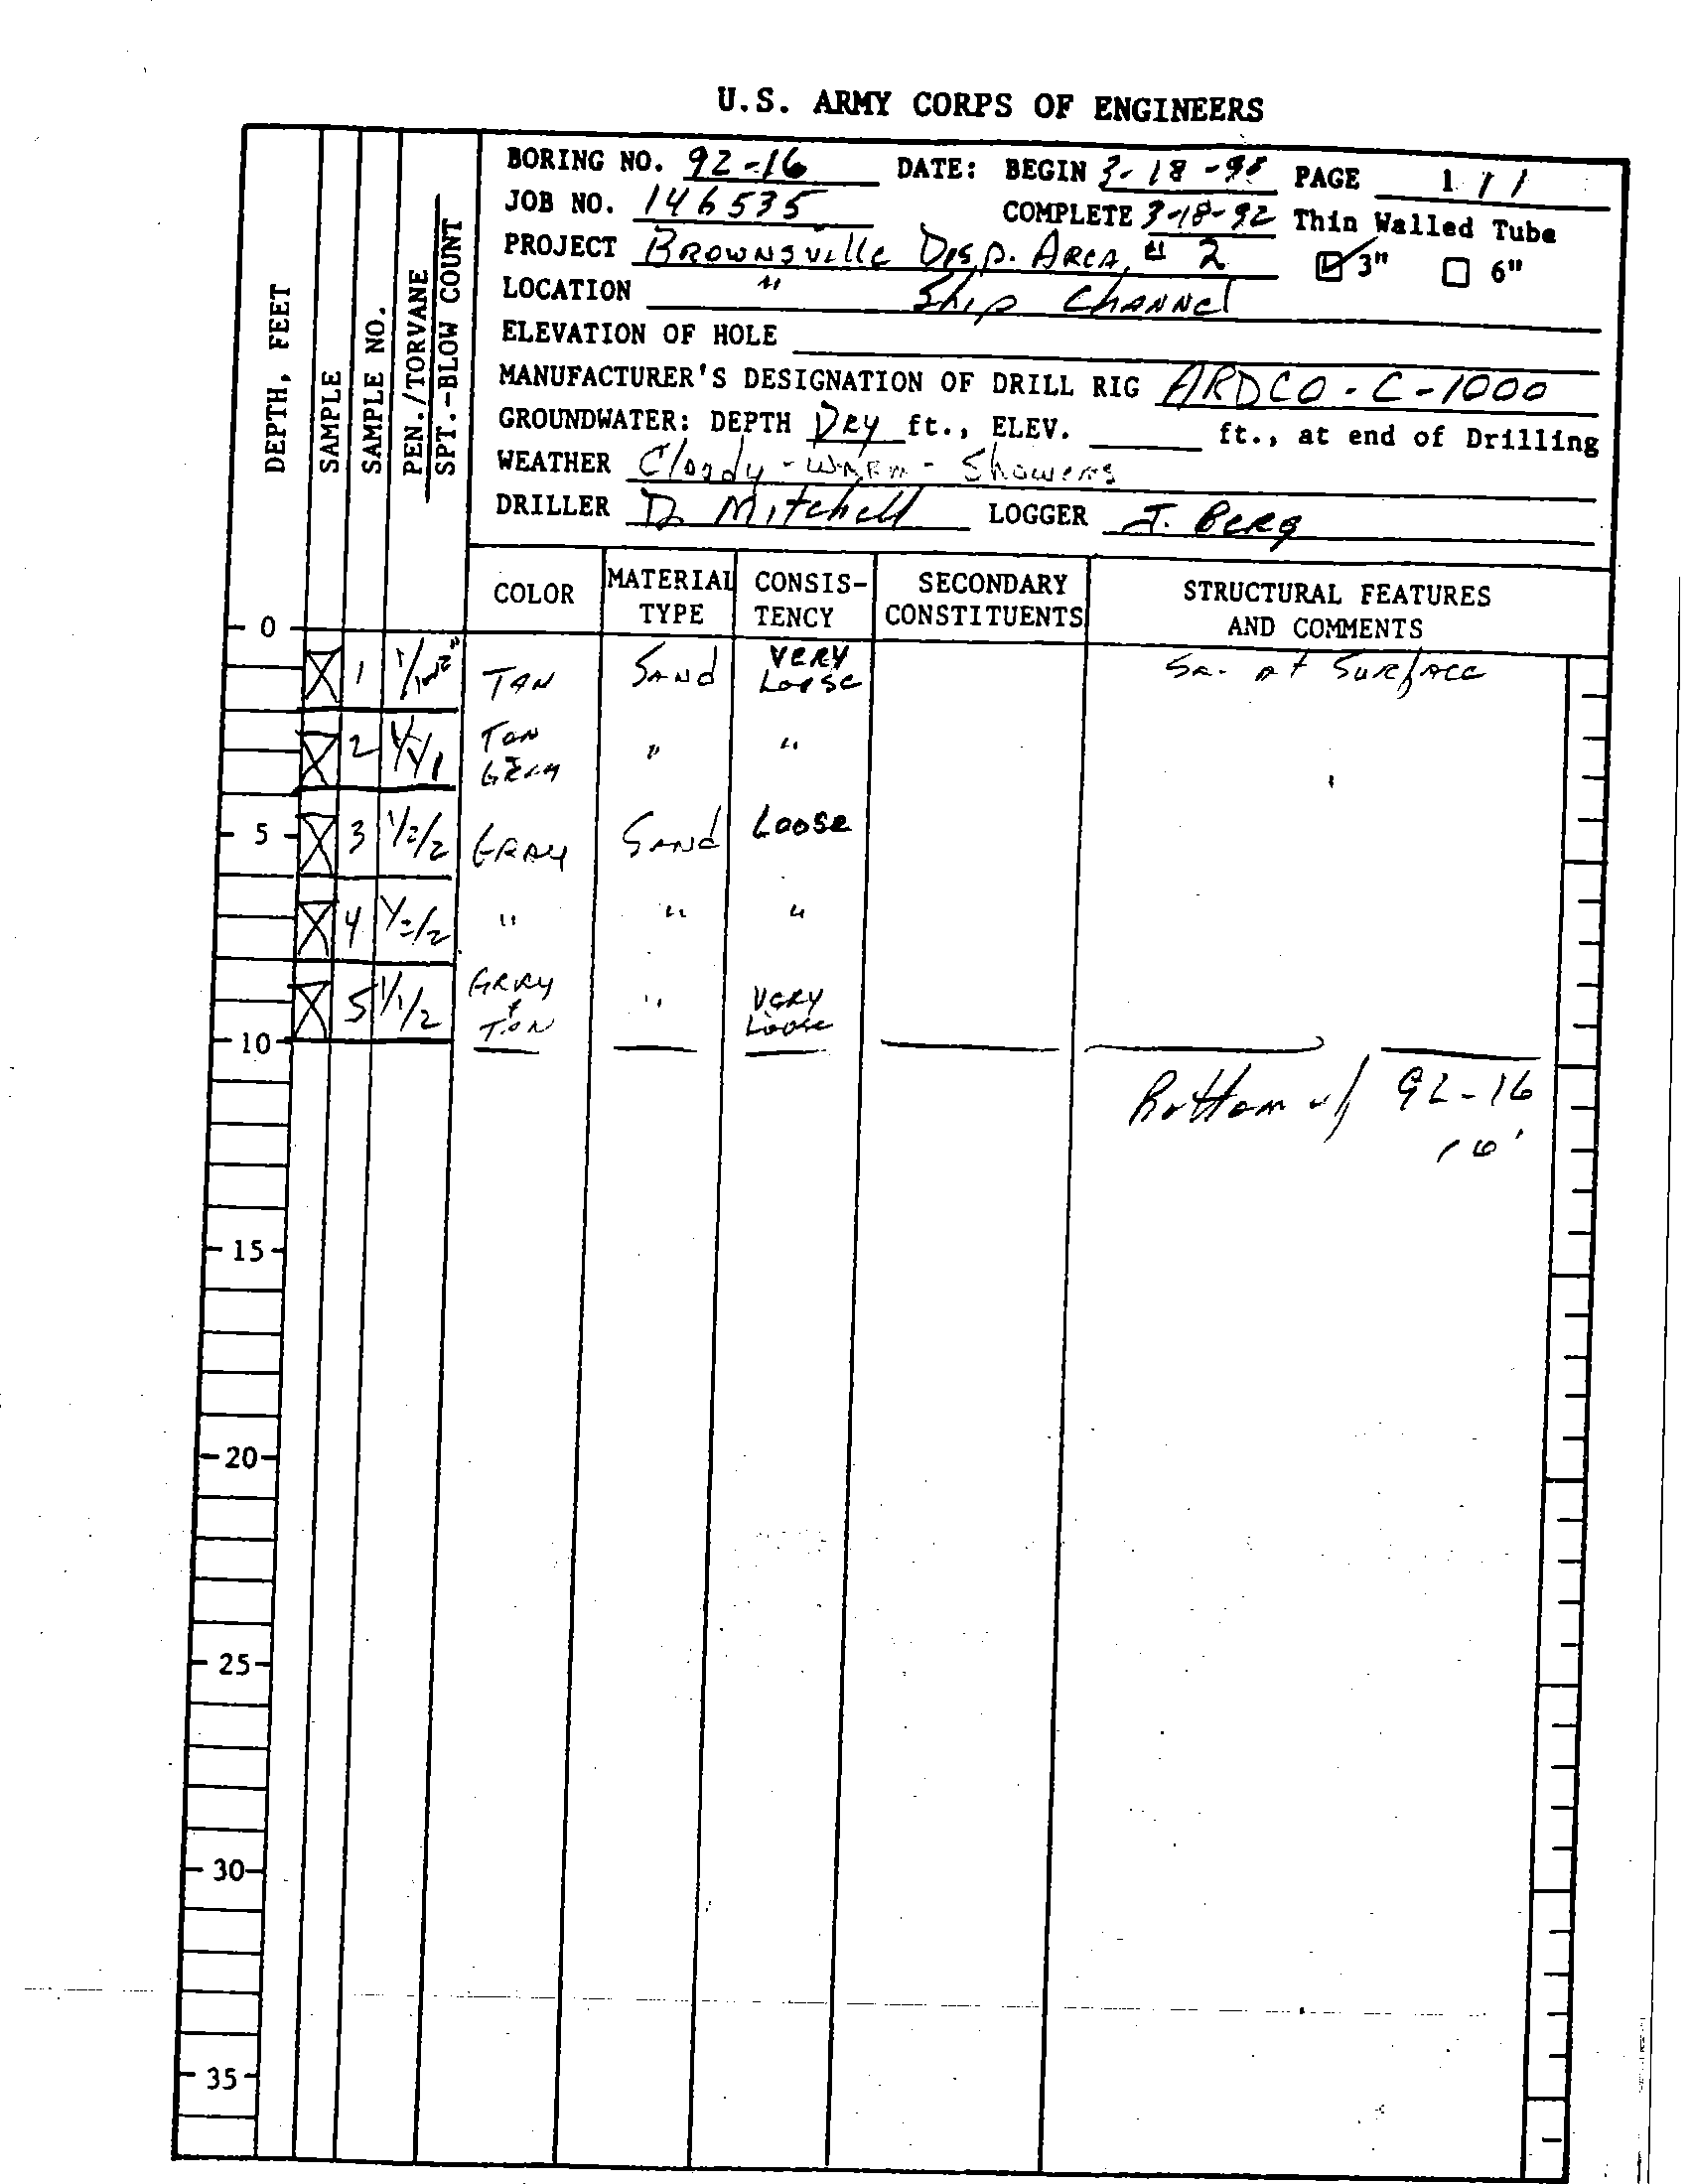 U.S. ARMY CORPS OF ENGINEERS
BORING NO. 92-16 DATE: BEGIN 3-18-92 PAGE 1 / 1
JOB NO. 146535 COMPLETE 3-18-92 Thin Walled Tube
PROJECT BROWNSVILLE DISP. AREA # 2 3" 6"
LOCATION " Ship CHANNEL
ELEVATION OF HOLE
MANUFACTURER'S DESIGNATION OF DRILL RIG ARDCO-C-1000
GROUNDWATER: DEPTH DRY ft., ELEV. ft., at end of Drilling
WEATHER Cloudy - WARM - Showers
DRILLER D. Mitchell LOGGER J. BERG
DEPTH, FEET
SAMPLE
SAMPLE NO.
PEN./TORVANE
SPT.-BLOW COUNT
COLOR MATERIAL TYPE CONSIS-TENCY SECONDARY CONSTITUENTS STRUCTURAL FEATURES AND COMMENTS
0
1 TAN SAND VERY LOOSE SA. AT SURFACE
2 1/1/1 TAN GRAY " "
5
3 1/2/2 GRAY SAND LOOSE
4 1/2/2 " " "
5 1/1/2 GRAY & TAN " VERY LOOSE
10
Bottom of 92-16
10'
15
20
25
30
35